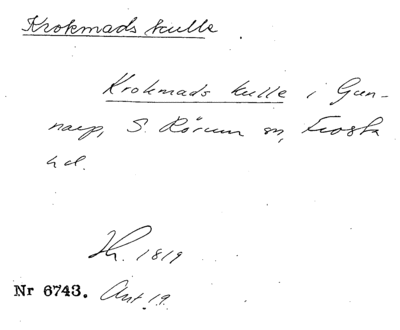 Krokmads kulle.
Krokmads kulle i Gun-
narp, S. Rörum sn, Frosta
hd.
Hr. 1819
Nr 6743. Ant. 19.